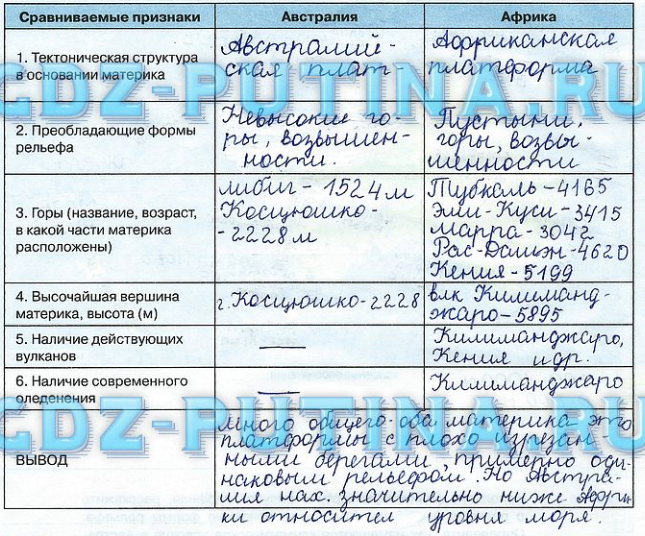 Сравниваемые признаки Австралия Африка
1. Тектоническая структура в основании материка
Австралий-
ская плат-
Африканская
платформа
GDZ-PUTINA.RU
2. Преобладающие формы рельефа
Невысокие го-
ры, возвышен-
ности.
Пустыни,
горы, возвы-
шенности
3. Горы (название, возраст, в какой части материка расположены)
Либиг - 1524 м
Косцюшко -
- 2228 м
Тубкаль - 4165
Эми-Куси - 3415
Марра - 3042
Рас-Дашэн - 4620
Кения - 5199
4. Высочайшая вершина материка, высота (м)
г. Косцюшко - 2228
влк Килиманд-
жаро - 5895
5. Наличие действующих вулканов
—
Килиманджаро,
Кения и др.
6. Наличие современного оледенения
—
Килиманджаро
GDZ-PUTINA.RU
ВЫВОД
Много общего. оба материка это
платформы с плохо изрезан-
ными берегами, примерно оди-
наковым рельефом. Но Австра-
лия нах. значительно ниже Афри-
ки относител уровня моря.